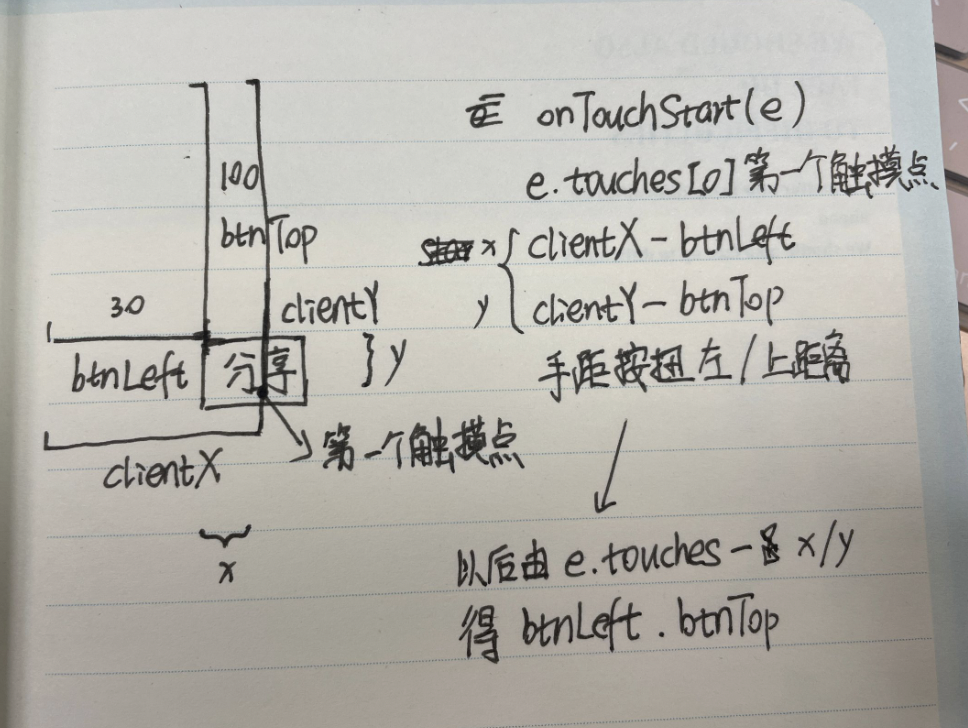 在 onTouchStart(e)
e.touches[0] 第一个触摸点
x { clientX - btnLeft
y clientY - btnTop
手距按扭左/上距离
以后由 e.touches - x/y
得 btnLeft . btnTop
100
btnTop
30
clientY
btnLeft
分享
} y
第一个触摸点
clientX
x